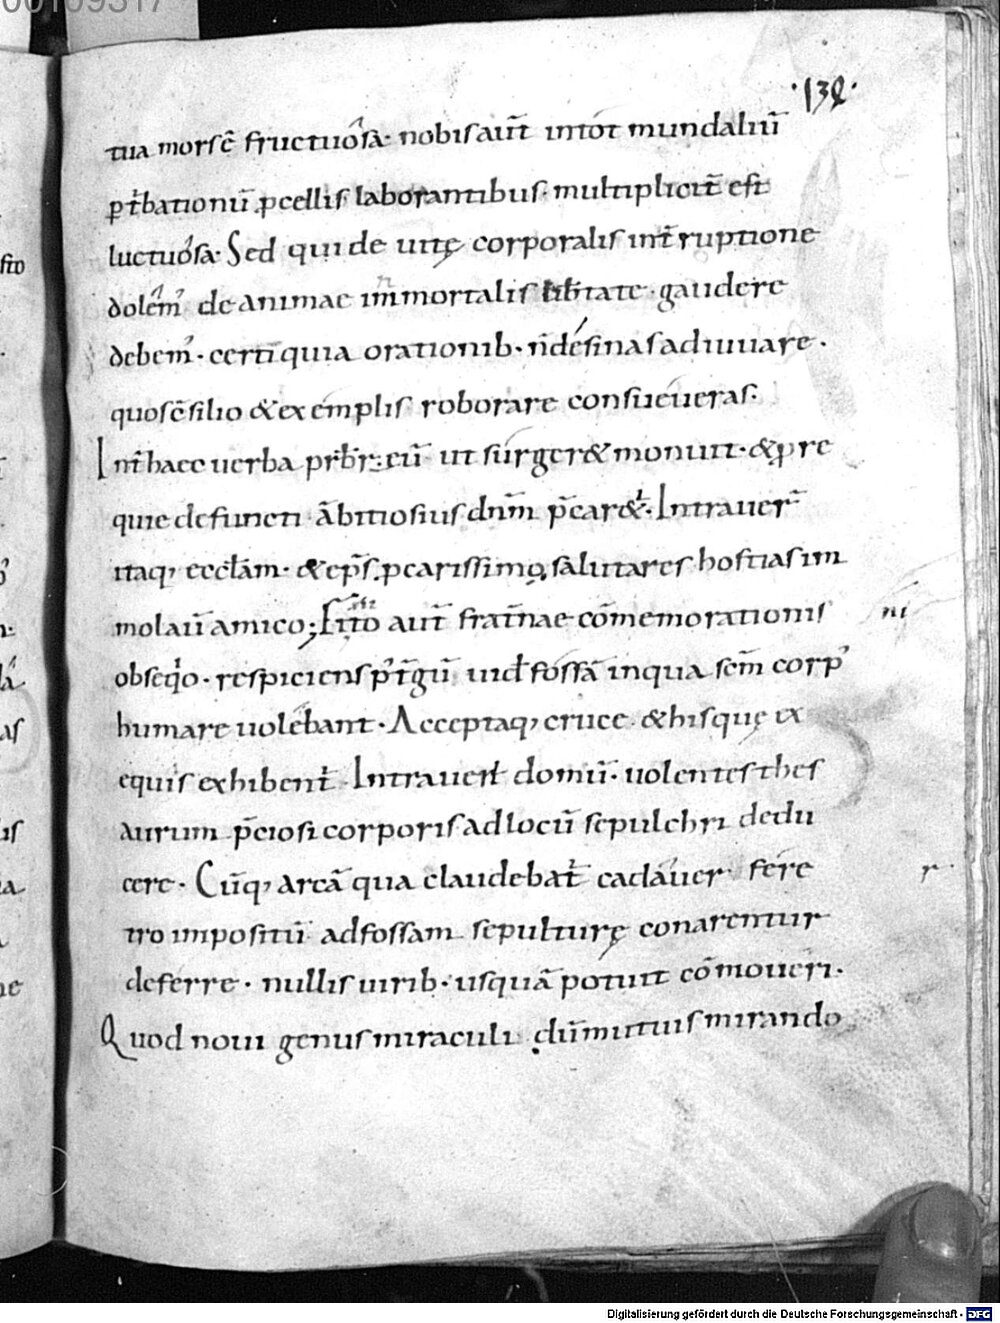 00109317
·132·
tua morſ ē fructuoſa· nobiſ aut̄ intot mundaliū
ꝑt̄bationū ꝓcelliſ laborantibuſ· multiplicit̄ eſt
luctuoſa· Sed qui de uitę corporaliſ int̄ruptione
dolem᾽ de animae inmortaliſ libtate· gaudere
debem᾽· certi quia orationib· n̄ deſinaſ adiuuare·
quoſ c̄ſilio &exemplıſ roborare conſueueraſ·
Int̄ haec uerba pr̄br̄ eū ut ſurger& monuit· &pre
quie defuncti ābitioſiuſ dn̄m p̄car&· Intrauer̄
itaq; eccl̄am· &ep̄ſ ꝓ cariſſimo ſalutareſ hoſtiaſ im
molauī amico; Finito aut̄ frat̄nae cōmemorationiſ
obſeq̇o· reſpicienſ ꝑt̄gū uid̄ foſſā inqua ſc̄m corp᾽
humare uolebant· Acceptaq; cruce &hiſquę ex
equiſ exhibent̄· Intrauer̄ domū· uolenteſ theſ
aurum p̄cioſi corporiſ adlocū ſepulchri dedu
cere· Cūq; arcā qua claudebat̄ cadauer fere
tro impoſitū adfoſſam ſepulturę conarentur
deferre· nulliſ uirib· uſquā potuit cōmoueri·
Quod noui genuſ miraculi dū mutuiſ mirando
ni
r
Digitalisierung gefördert durch die Deutsche Forschungsgemeinschaft - DFG